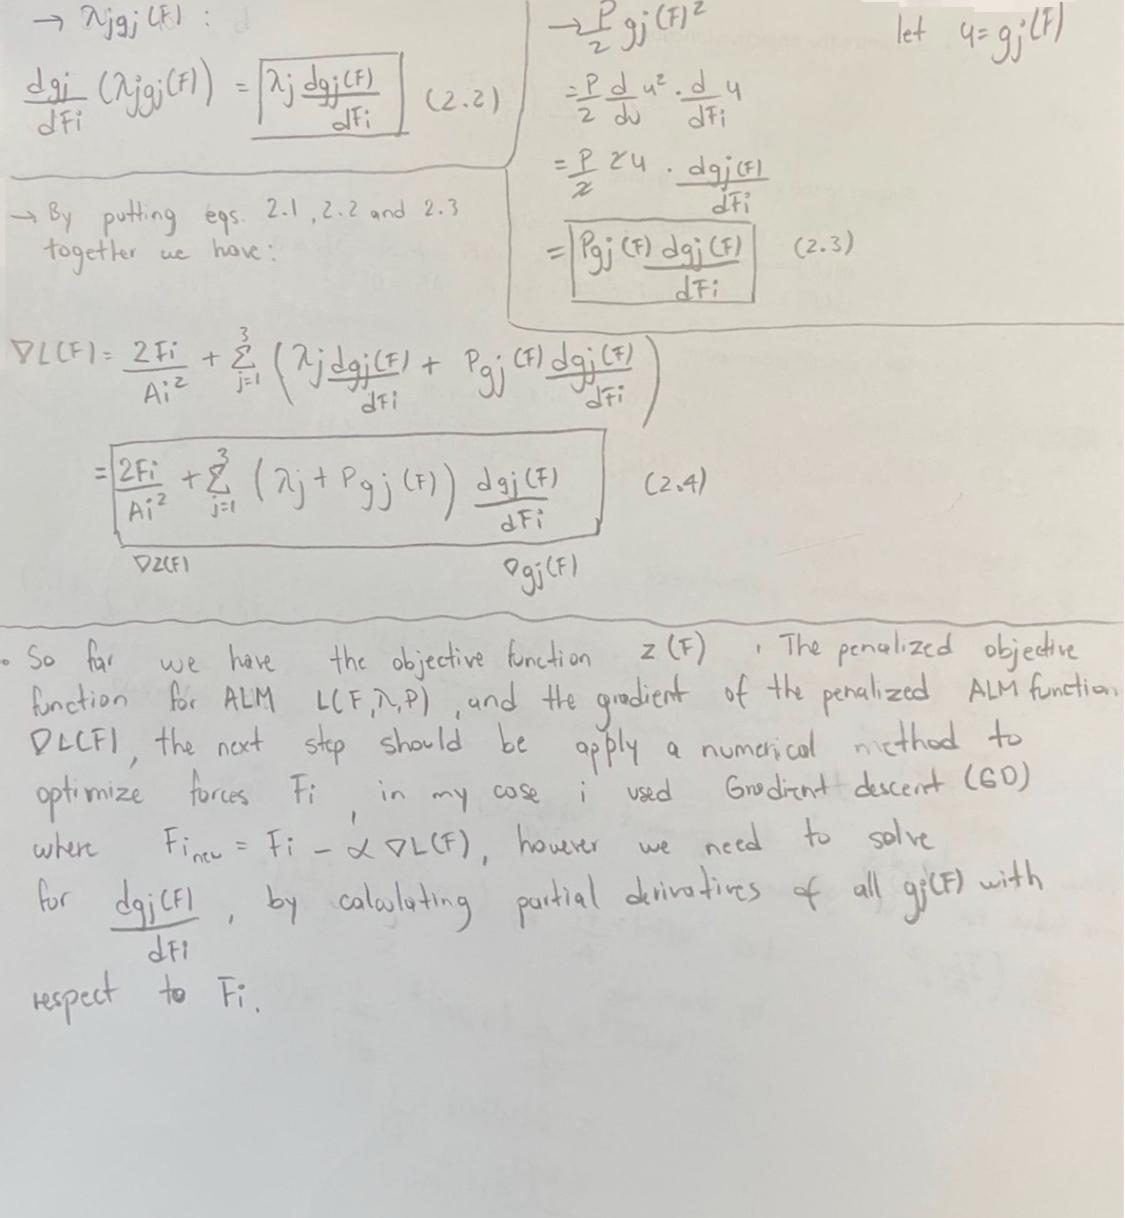 → λjgj(F) :
dgi/dFi (λjgj(F)) = λj dgj(F)/dFi (2.2)
→ By putting eqs. 2.1, 2.2 and 2.3
together we have:
→ P/2 gj(F)² let u = gj(F)
= P/2 d/du u² · d/dFi u
= P/2 2u · dgj(F)/dFi
= Pgj(F) dgj(F)/dFi (2.3)
∇L(F) = 2Fi/Ai² + Σ_{j=1}^{3} (λj dgj(F)/dFi + Pgj(F) dgj(F)/dFi)
= 2Fi/Ai² + Σ_{j=1}^{3} (λj + Pgj(F)) dgj(F)/dFi (2.4)
∇Z(F) ∇gj(F)
• So far we have the objective function z(F) , The penalized objective
function for ALM L(F,λ,P) , and the gradient of the penalized ALM function
∇L(F), the next step should be apply a numerical method to
optimize forces Fi , in my case i used Gradient descent (GD)
where Fi new = Fi - α ∇L(F), however we need to solve
for dgj(F)/dFi , by calculating partial derivatives of all gj(F) with
respect to Fi.